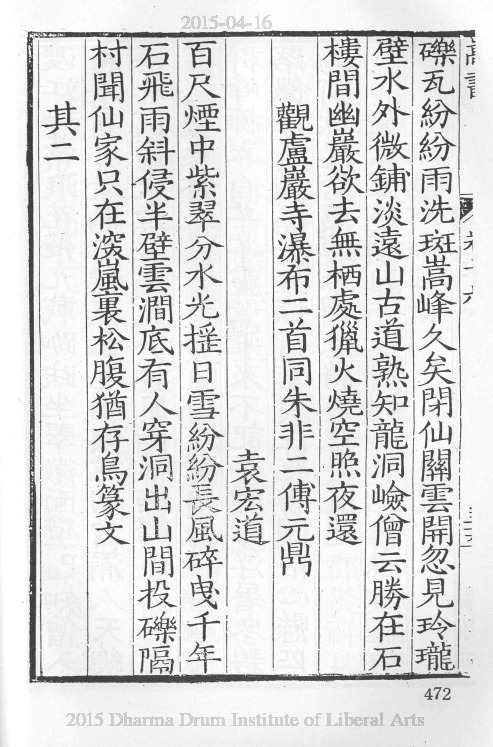 2015-04-16
礫瓦紛紛雨洗斑嵩峰久矣閉仙關雲開忽見玲瓏
壁水外微鋪淡遠山古道熟知龍洞嶮僧云勝在石
樓間幽巖欲去無栖處獵火燒空照夜還
觀盧巖寺瀑布二首同朱非二傅元鼎
袁宏道
百尺煙中紫翠分水光搖日雪紛紛長風碎曳千年
石飛雨斜侵半壁雲澗底有人穿洞出山間投礫隔
村聞仙家只在深嵐裏松腹猶存鳥篆文
其二
472
2015 Dharma Drum Institute of Liberal Arts